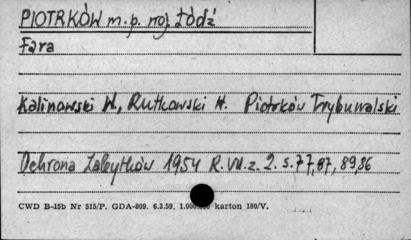 PIOTRKÓW m.p. woj. Łódź
Fara
Kalinowski W, Rutkowski H. Piotrków Trybunalski
Ochrona Zabytków 1954 R. VII. z. 2. s. 77, 87, 89, 86
CWD B-15b Nr 515/P. GDA-809. 6.3.59. 1.000.000 karton 180/V.